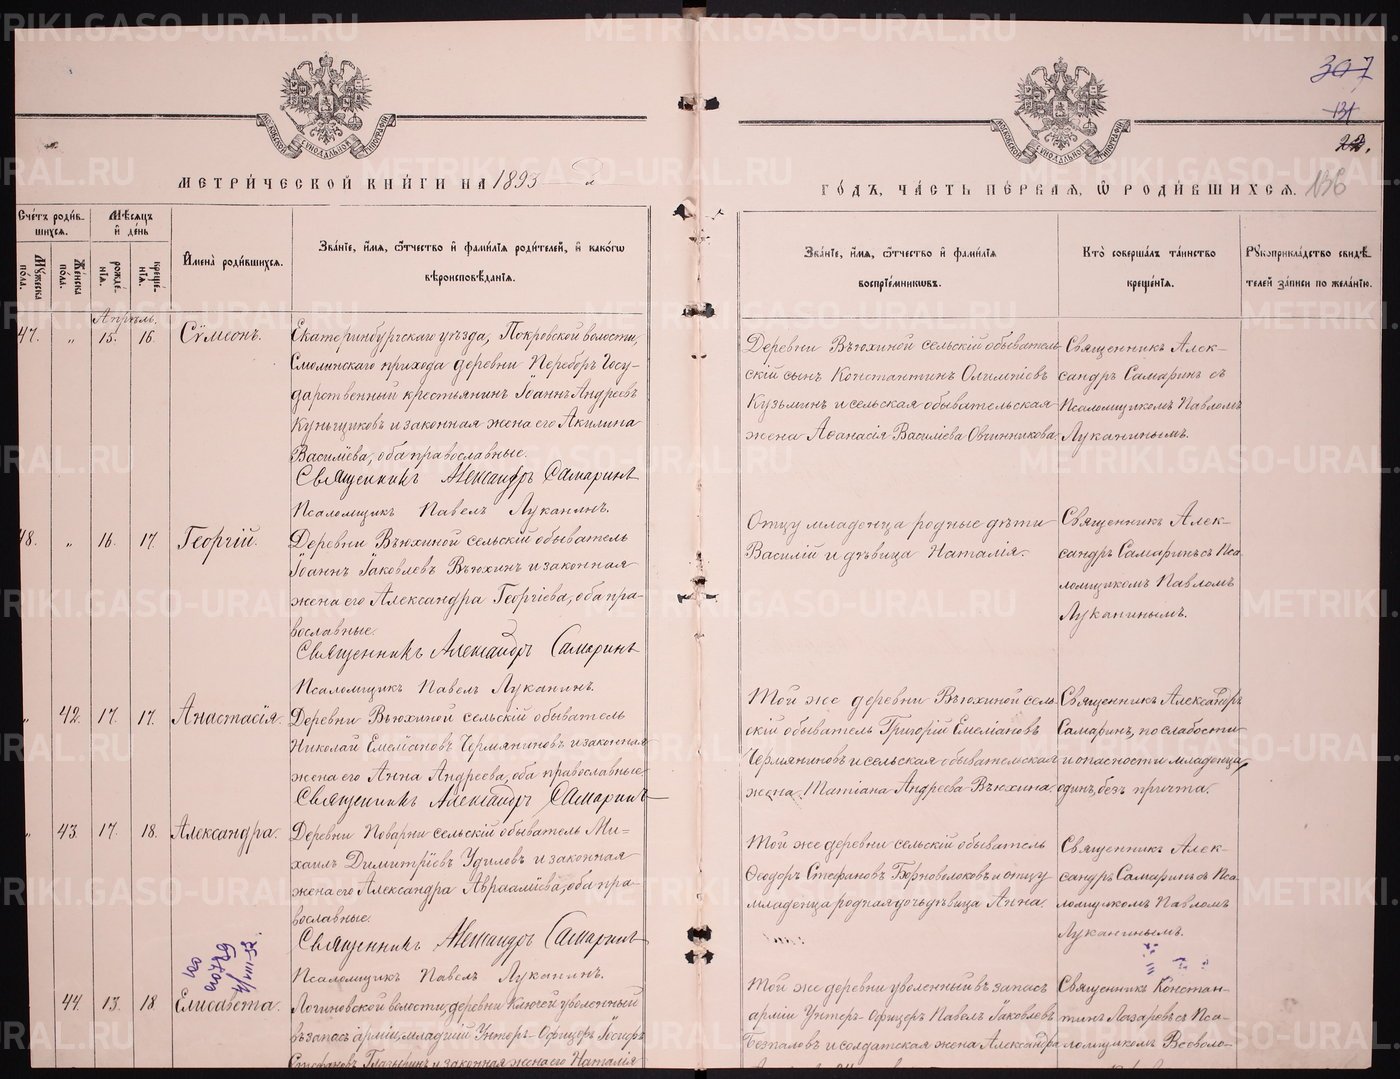 METRIKI.GASO-URAL.RU
307
131
22.
136
МОСКОВСКОЙ СУНОДАЛЬНОЙ ТИПОГРАФІИ
МОСКОВСКОЙ СУНОДАЛЬНОЙ ТИПОГРАФІИ
МЕТРИ́ЧЕСКОЙ КНИ́ГИ НА 1893 й
ГО́ДЪ, ЧА́СТЬ ПЕ́РВАЯ, Ѿ РОДИ́ВШИХСЯ.
Сче́тъ роди́вшихся.
Мѣ́сяцъ и҆ де́нь
Му́жеска пола.
Же́нска пола.
рожде́нїя.
креще́нїя.
И҆мена̀ роди́вшихся.
Зва́нїе, и҆́мя, ѻ҆́тчество и҆ фами́лїя роди́телей, и҆ како́гѡ вѣроисповѣ́данїя.
Зва́нїе, и҆́мя, ѻ҆́тчество и҆ фами́лїя воспрїе́мникѡвъ.
Кто̀ соверша́лъ та́инство креще́нїя.
Рꙋкоприкла́дство свидѣ́телей за́писи по жела́нїю.
Апрѣль.
47. „ 15. 16. Сѵмеонъ.
Екатеринбургскаго уѣзда, Покровской волости,
Смолинскаго прихода деревни Переборъ Госу-
дарственный крестьянинъ Іоаннъ Андреевъ
Куньщиковъ и законная жена его Акилина
Василіева, оба православные.
Священникъ Александръ Самаринъ
Псаломщикъ Павелъ Луканинъ.
Деревни Вьюхиной сельскій обыватель-
скій сынъ Константинъ Олимпіевъ
Кузьминъ и сельская обывательская
жена Аѳанасія Василіева Овчинникова.
Священникъ Алек-
сандръ Самаринъ съ
Псаломщикомъ Павломъ
Луканинымъ.
48. „ 16. 17. Георгій.
Деревни Вьюхиной сельскій обыватель
Іоаннъ Іаковлевъ Вьюхинъ и законная
жена его Александра Георгіева, оба пра-
вославные.
Священникъ Александръ Самаринъ
Псаломщикъ Павелъ Луканинъ.
Отцу младенца родные дѣти
Василій и дѣвица Наталія.
Священникъ Алек-
сандръ Самаринъ съ Пса
ломщикомъ Павломъ
Луканинымъ.
„ 42. 17. 17. Анастасія.
Деревни Вьюхиной сельскій обыватель
Николай Емеліановъ Чермяниновъ и законная
жена его Анна Андреева, оба православные
Священникъ Александръ Самаринъ
Той же деревни Вьюхиной сель
скій обыватель Григорій Емеліановъ
Чермяниновъ и сельская обывательская
жена Татіана Андреева Вьюхина.
Священникъ Александръ
Самаринъ, по слабости
и опасности младенца,
одинъ, безъ причта.
„ 43. 17. 18. Александра.
Деревни Поварни сельскій обыватель Ми-
хаилъ Димитріевъ Удиловъ и законная
жена его Александра Авраамиева, оба пра-
вославные.
Священникъ Александръ Самаринъ
Псаломщикъ Павелъ Луканинъ.
Той же деревни сельскій обыватель
Ѳеодоръ Стефановъ Берноволоковъ и отцу
младенца родная дочь дѣвица Анна.
Священникъ Алек-
сандръ Самаринъ съ Пса
ломщикомъ Павломъ
Луканинымъ.
44. 13. 18 Елисавета.
Логиновской волости, деревни Ключей уволенный
въ запасъ арміи, младшій Унтеръ-Офицеръ
Стефановъ и законная жена его Наталія
Той же деревни уволенный въ запасъ
арміи Унтеръ-Офицеръ Павелъ Іаковлевъ
Безпаловъ и солдатская жена Александра
Священникъ Констан-
тинъ Лазаревъ съ Пса-
ломщикомъ Всеволо-